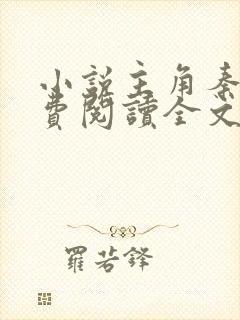 小說主角秦
費閱讀全文
羅若鋒